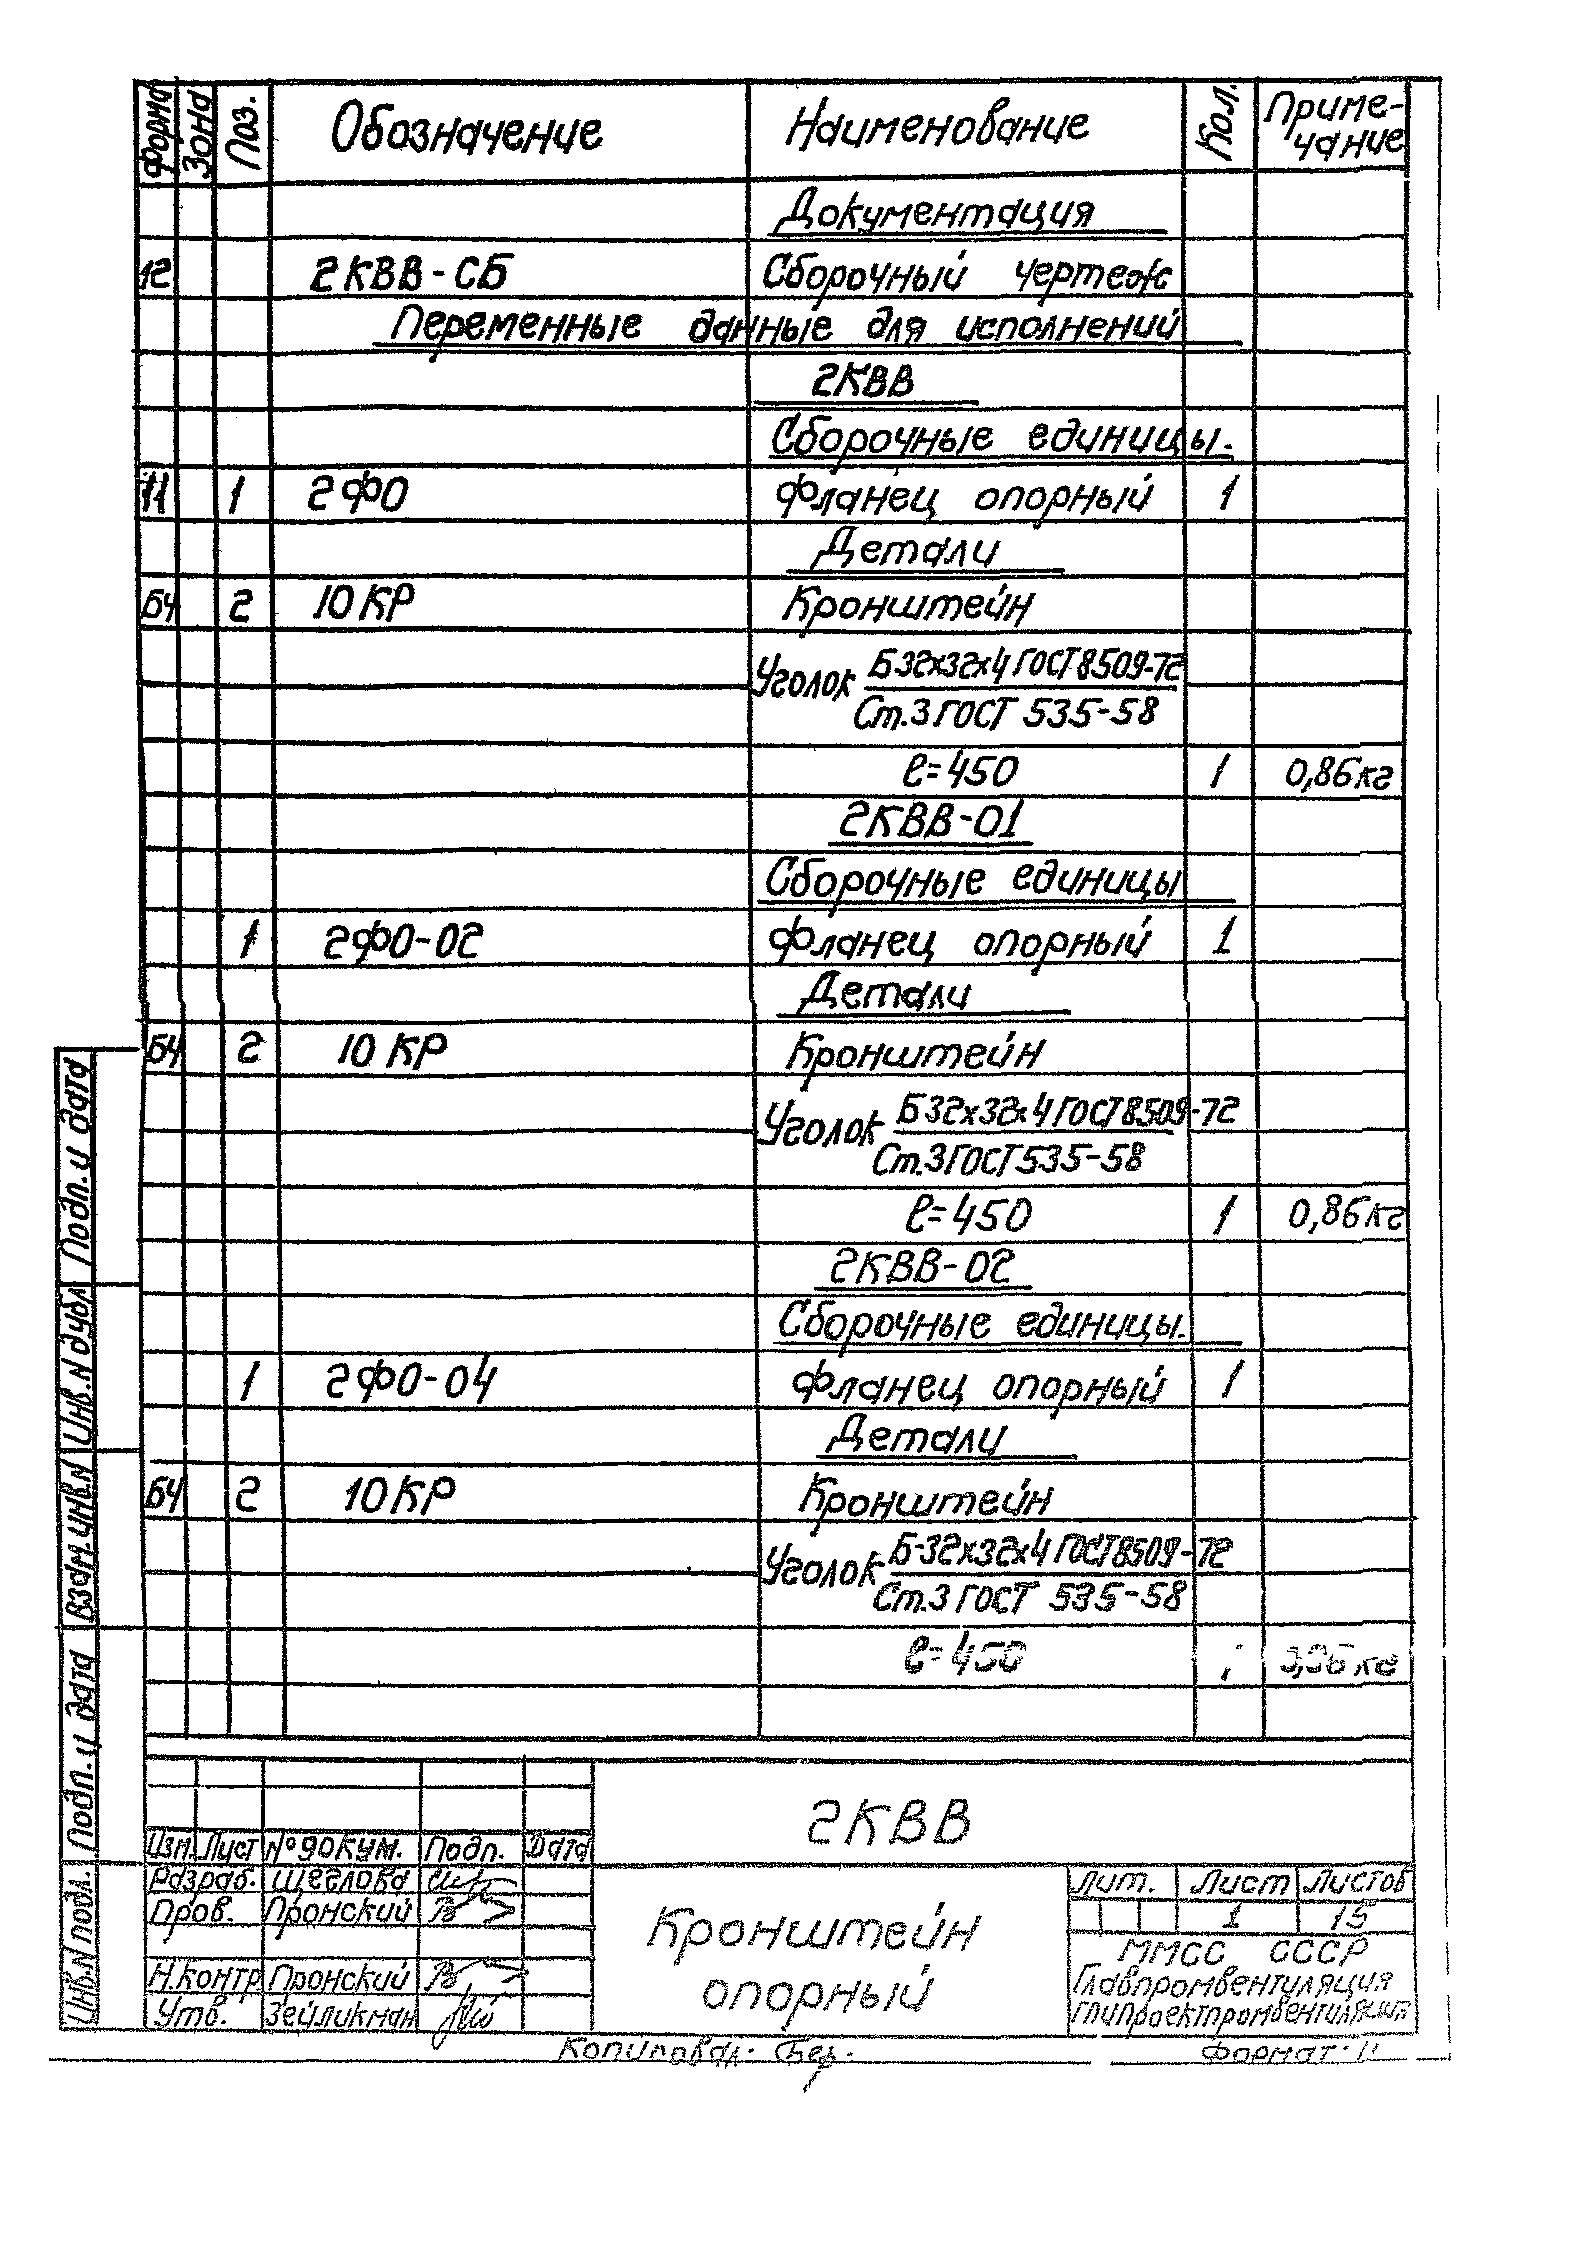 Форма Зона Поз. Обозначение Наименование Кол. Приме-
чание
Документация
12 2КВВ-СБ Сборочный чертеж
Переменные данные для исполнений
2КВВ
Сборочные единицы.
11 1 2ФО Фланец опорный 1
Детали
БЧ 2 10КР Кронштейн
Уголок Б32х32х4 ГОСТ 8509-72
Ст.3 ГОСТ 535-58
ℓ=450 1 0,86кг
2КВВ-01
Сборочные единицы
1 2ФО-02 Фланец опорный 1
Детали
БЧ 2 10 КР Кронштейн
Уголок Б32х32х4 ГОСТ 8509-72
Ст.3 ГОСТ 535-58
ℓ=450 1 0,86кг
2КВВ-02
Сборочные единицы.
1 2ФО-04 Фланец опорный 1
Детали
БЧ 2 10КР Кронштейн
Уголок Б-32х32х4 ГОСТ 8509-72
Ст.3 ГОСТ 535-58
ℓ=450 кг
Подп. и дата
Инв.N дубл
Взам. инв.N
Подп. и дата
Инв.N подл.
2КВВ
Изм. Лист N° докум. Подп. Дата
Разраб. Щеглова
Пров. Пронский
Н.контр Пронский
Утв. Зейликман
Кронштейн
опорный
Лит. Лист Листов
1 15
ММСС СССР
Главпромвентиляция
ГПИПроектпромвентиляция
Копировал. Формат. 11